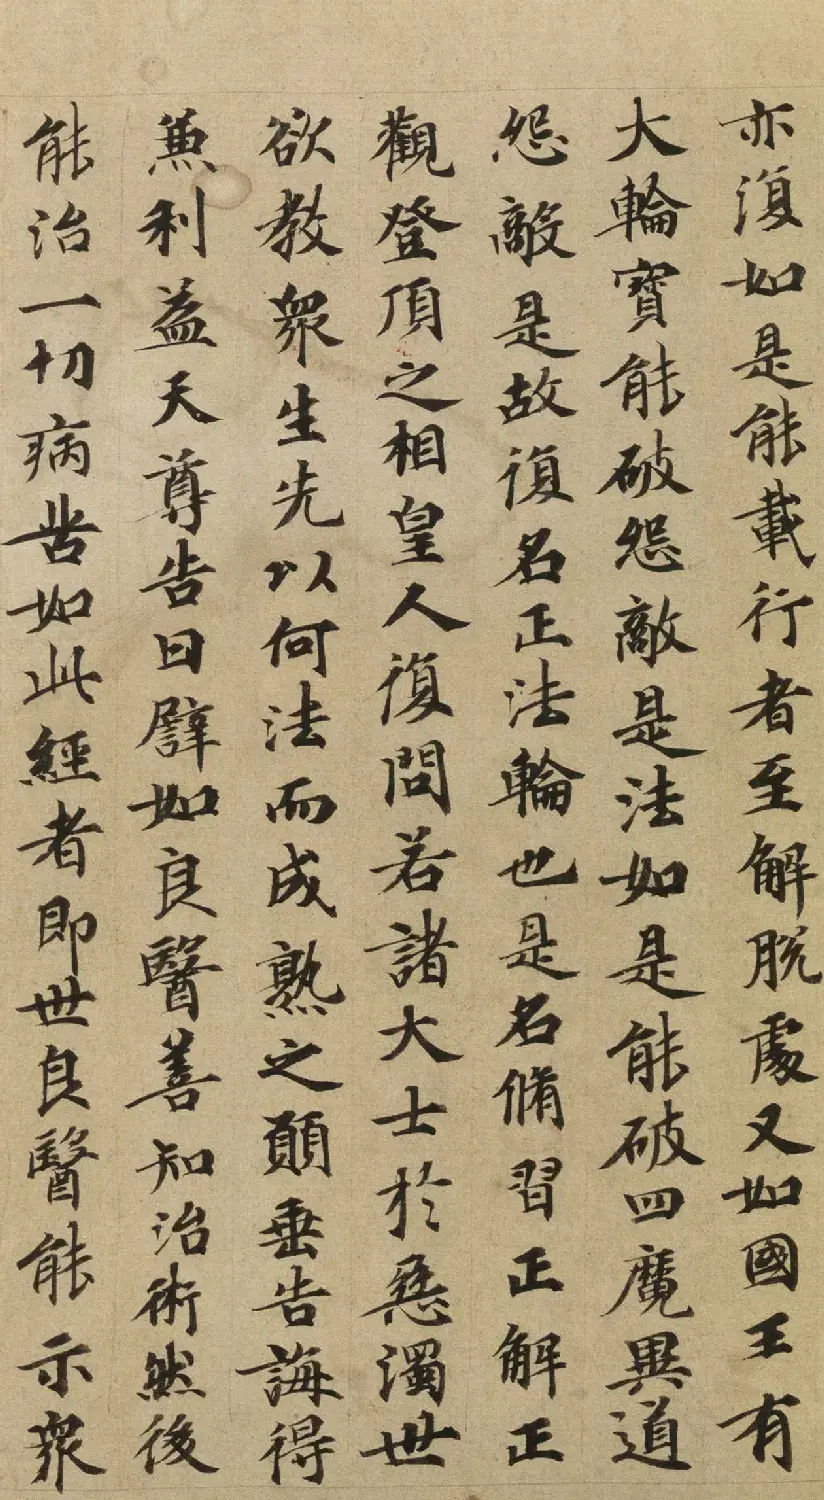 亦復如是能載行者至解脫處又如國王有
大輪寶能破怨敵是法如是能破四魔異道
怨敵是故復名正法輪也是名脩習正解正
觀登頂之相皇人復問若諸大士於惡濁世
欲教衆生先以何法而成熟之願垂告誨得
兼利益天尊告曰譬如良醫善知治術然後
能治一切病苦如此經者即世良醫能示衆